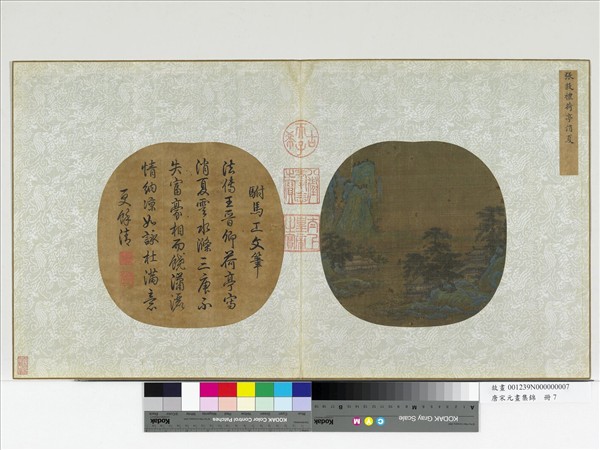 張敦禮荷亭消夏
駙馬工文筆
法傳王晉卿荷亭寫
消夏雲水滌三庚不
失富豪相而饒瀟灑
情納涼如詠杜滿意
餘清
古希天子
KODAK Color Control Patches
KODAK Gray Scale
C Y M
故畫 001239N000000007
唐宋元畫集錦 冊 7